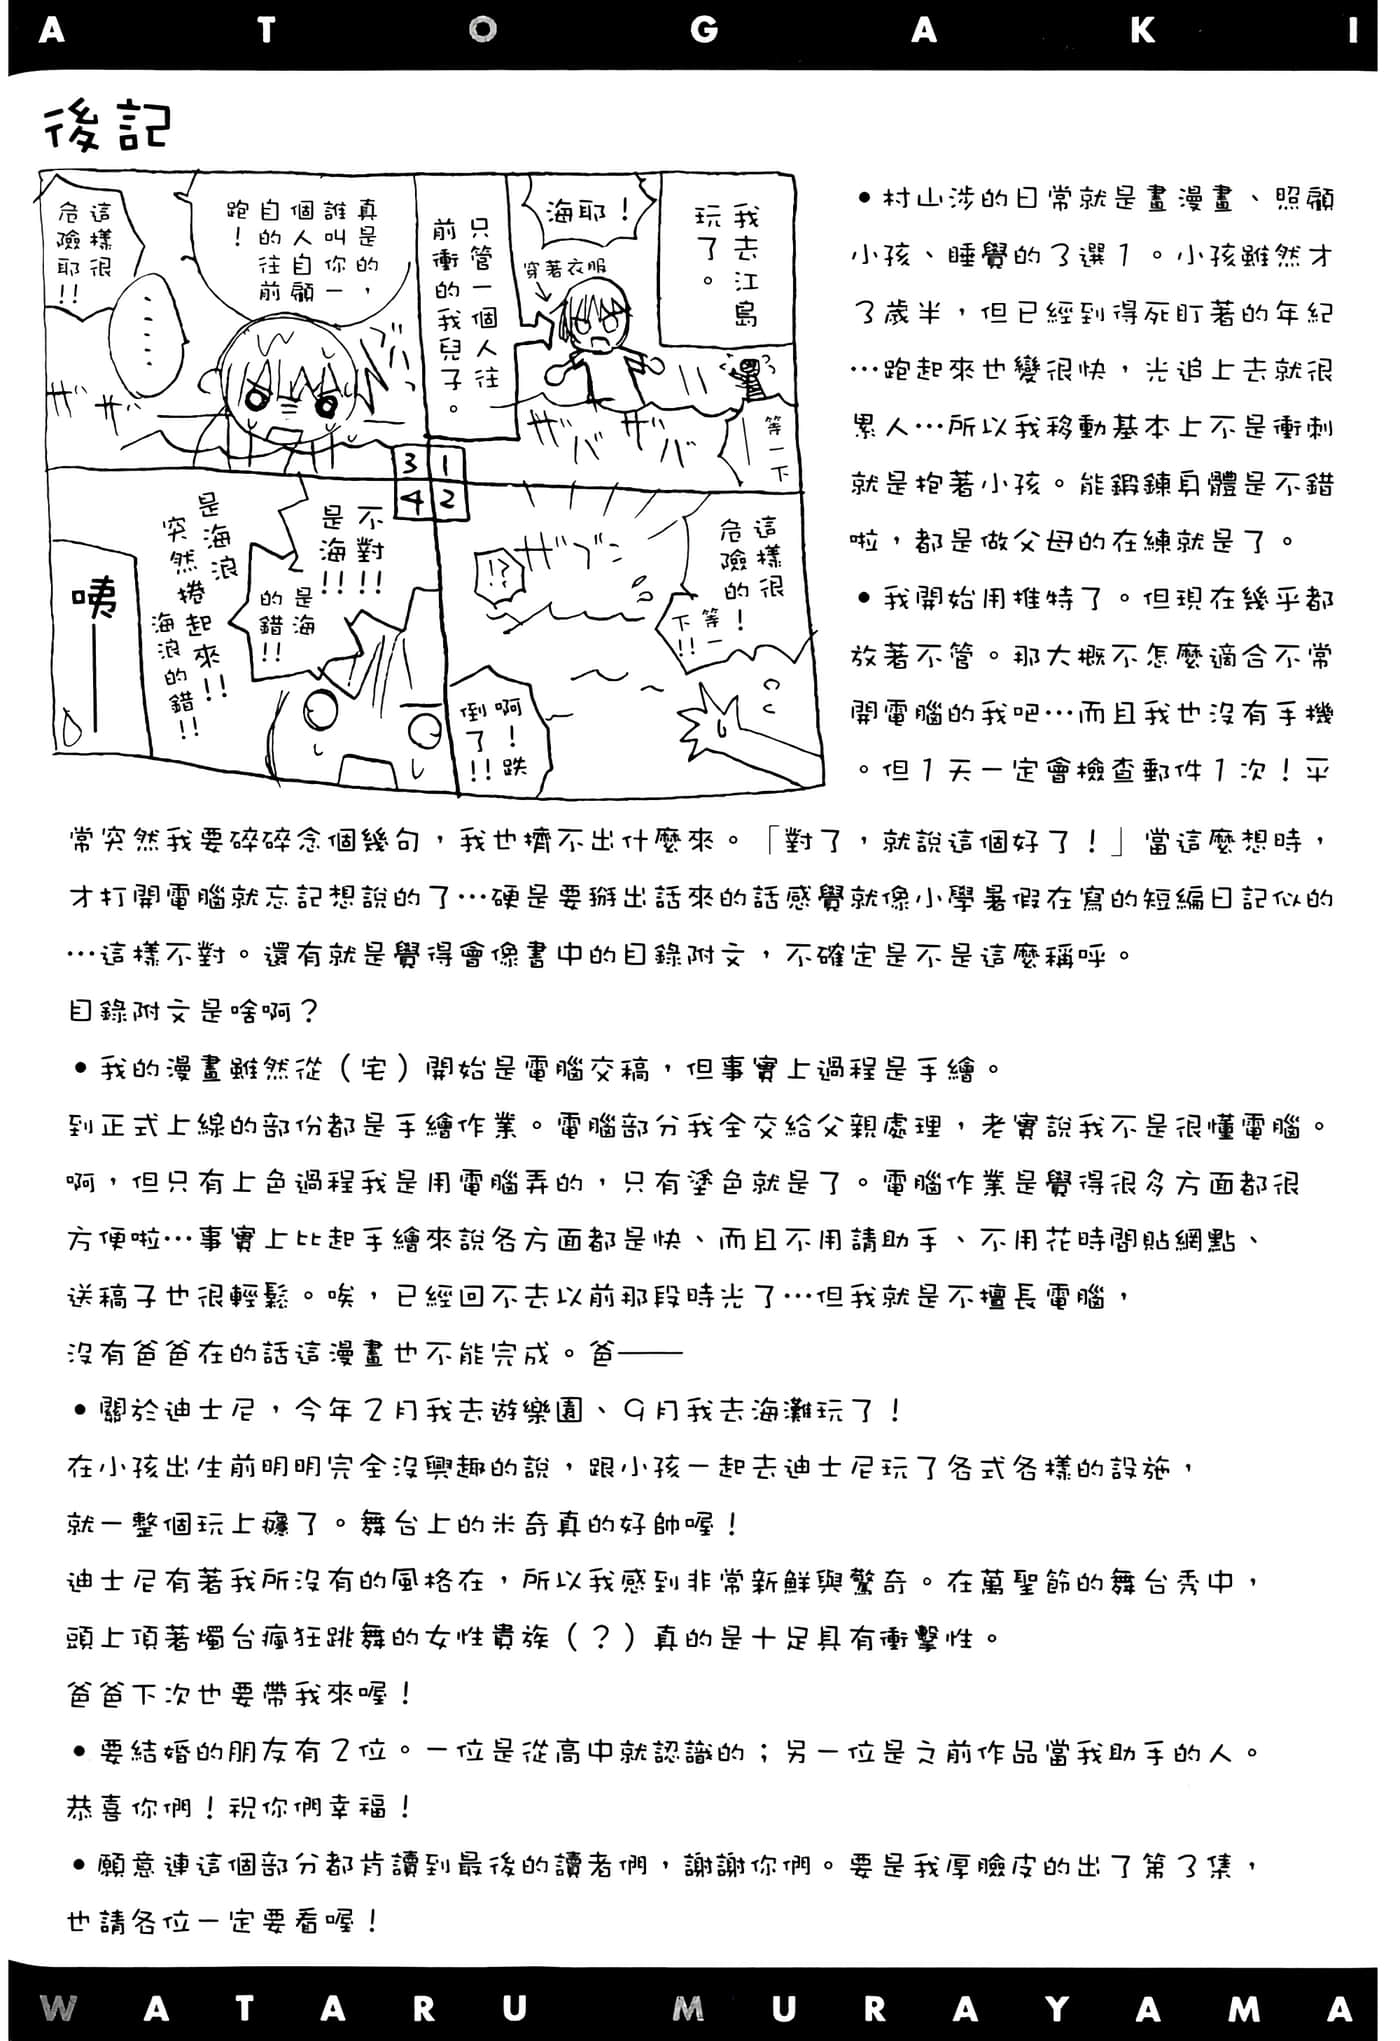 ATOGAKI
後記
我去江島
玩了。
海耶！
穿著衣服
等一下
只管一個人往
前衝的我兒子。
這樣很
危險的！
等一
下!!
!?
啊！跌
倒了!!
ザザ
ババ
ザブン
真是的，
誰叫你一
個人自顧
自的往前
跑！
……
這樣很
危險耶!!
ザザ
不對!!
是海!!
是海
的錯!!
是海浪
突然捲起來!!
海浪的錯!!
咦——
3 1
4 2
•村山涉的日常就是畫漫畫、照顧
小孩、睡覺的3選1。小孩雖然才
3歲半，但已經到得死盯著的年紀
…跑起來也變很快，光追上去就很
累人…所以我移動基本上不是衝刺
就是抱著小孩。能鍛鍊身體是不錯
啦，都是做父母的在練就是了。
•我開始用推特了。但現在幾乎都
放著不管。那大概不怎麼適合不常
開電腦的我吧…而且我也沒有手機
。但1天一定會檢查郵件1次！平
常突然我要碎碎念個幾句，我也擠不出什麼來。「對了，就說這個好了！」當這麼想時，
才打開電腦就忘記想說的了…硬是要掰出話來的話感覺就像小學暑假在寫的短編日記似的
…這樣不對。還有就是覺得會像書中的目錄附文，不確定是不是這麼稱呼。
目錄附文是啥啊？
•我的漫畫雖然從（宅）開始是電腦交稿，但事實上過程是手繪。
到正式上線的部份都是手繪作業。電腦部分我全交給父親處理，老實說我不是很懂電腦。
啊，但只有上色過程我是用電腦弄的，只有塗色就是了。電腦作業是覺得很多方面都很
方便啦…事實上比起手繪來說各方面都是快、而且不用請助手、不用花時間貼網點、
送稿子也很輕鬆。唉，已經回不去以前那段時光了…但我就是不擅長電腦，
沒有爸爸在的話這漫畫也不能完成。爸——
•關於迪士尼，今年2月我去遊樂園、9月我去海灘玩了！
在小孩出生前明明完全沒興趣的說，跟小孩一起去迪士尼玩了各式各樣的設施，
就一整個玩上癮了。舞台上的米奇真的好帥喔！
迪士尼有著我所沒有的風格在，所以我感到非常新鮮與驚奇。在萬聖節的舞台秀中，
頭上頂著燭台瘋狂跳舞的女性貴族（？）真的是十足具有衝擊性。
爸爸下次也要帶我來喔！
•要結婚的朋友有2位。一位是從高中就認識的；另一位是之前作品當我助手的人。
恭喜你們！祝你們幸福！
•願意連這個部分都肯讀到最後的讀者們，謝謝你們。要是我厚臉皮的出了第3集，
也請各位一定要看喔！
WATARU MURAYAMA